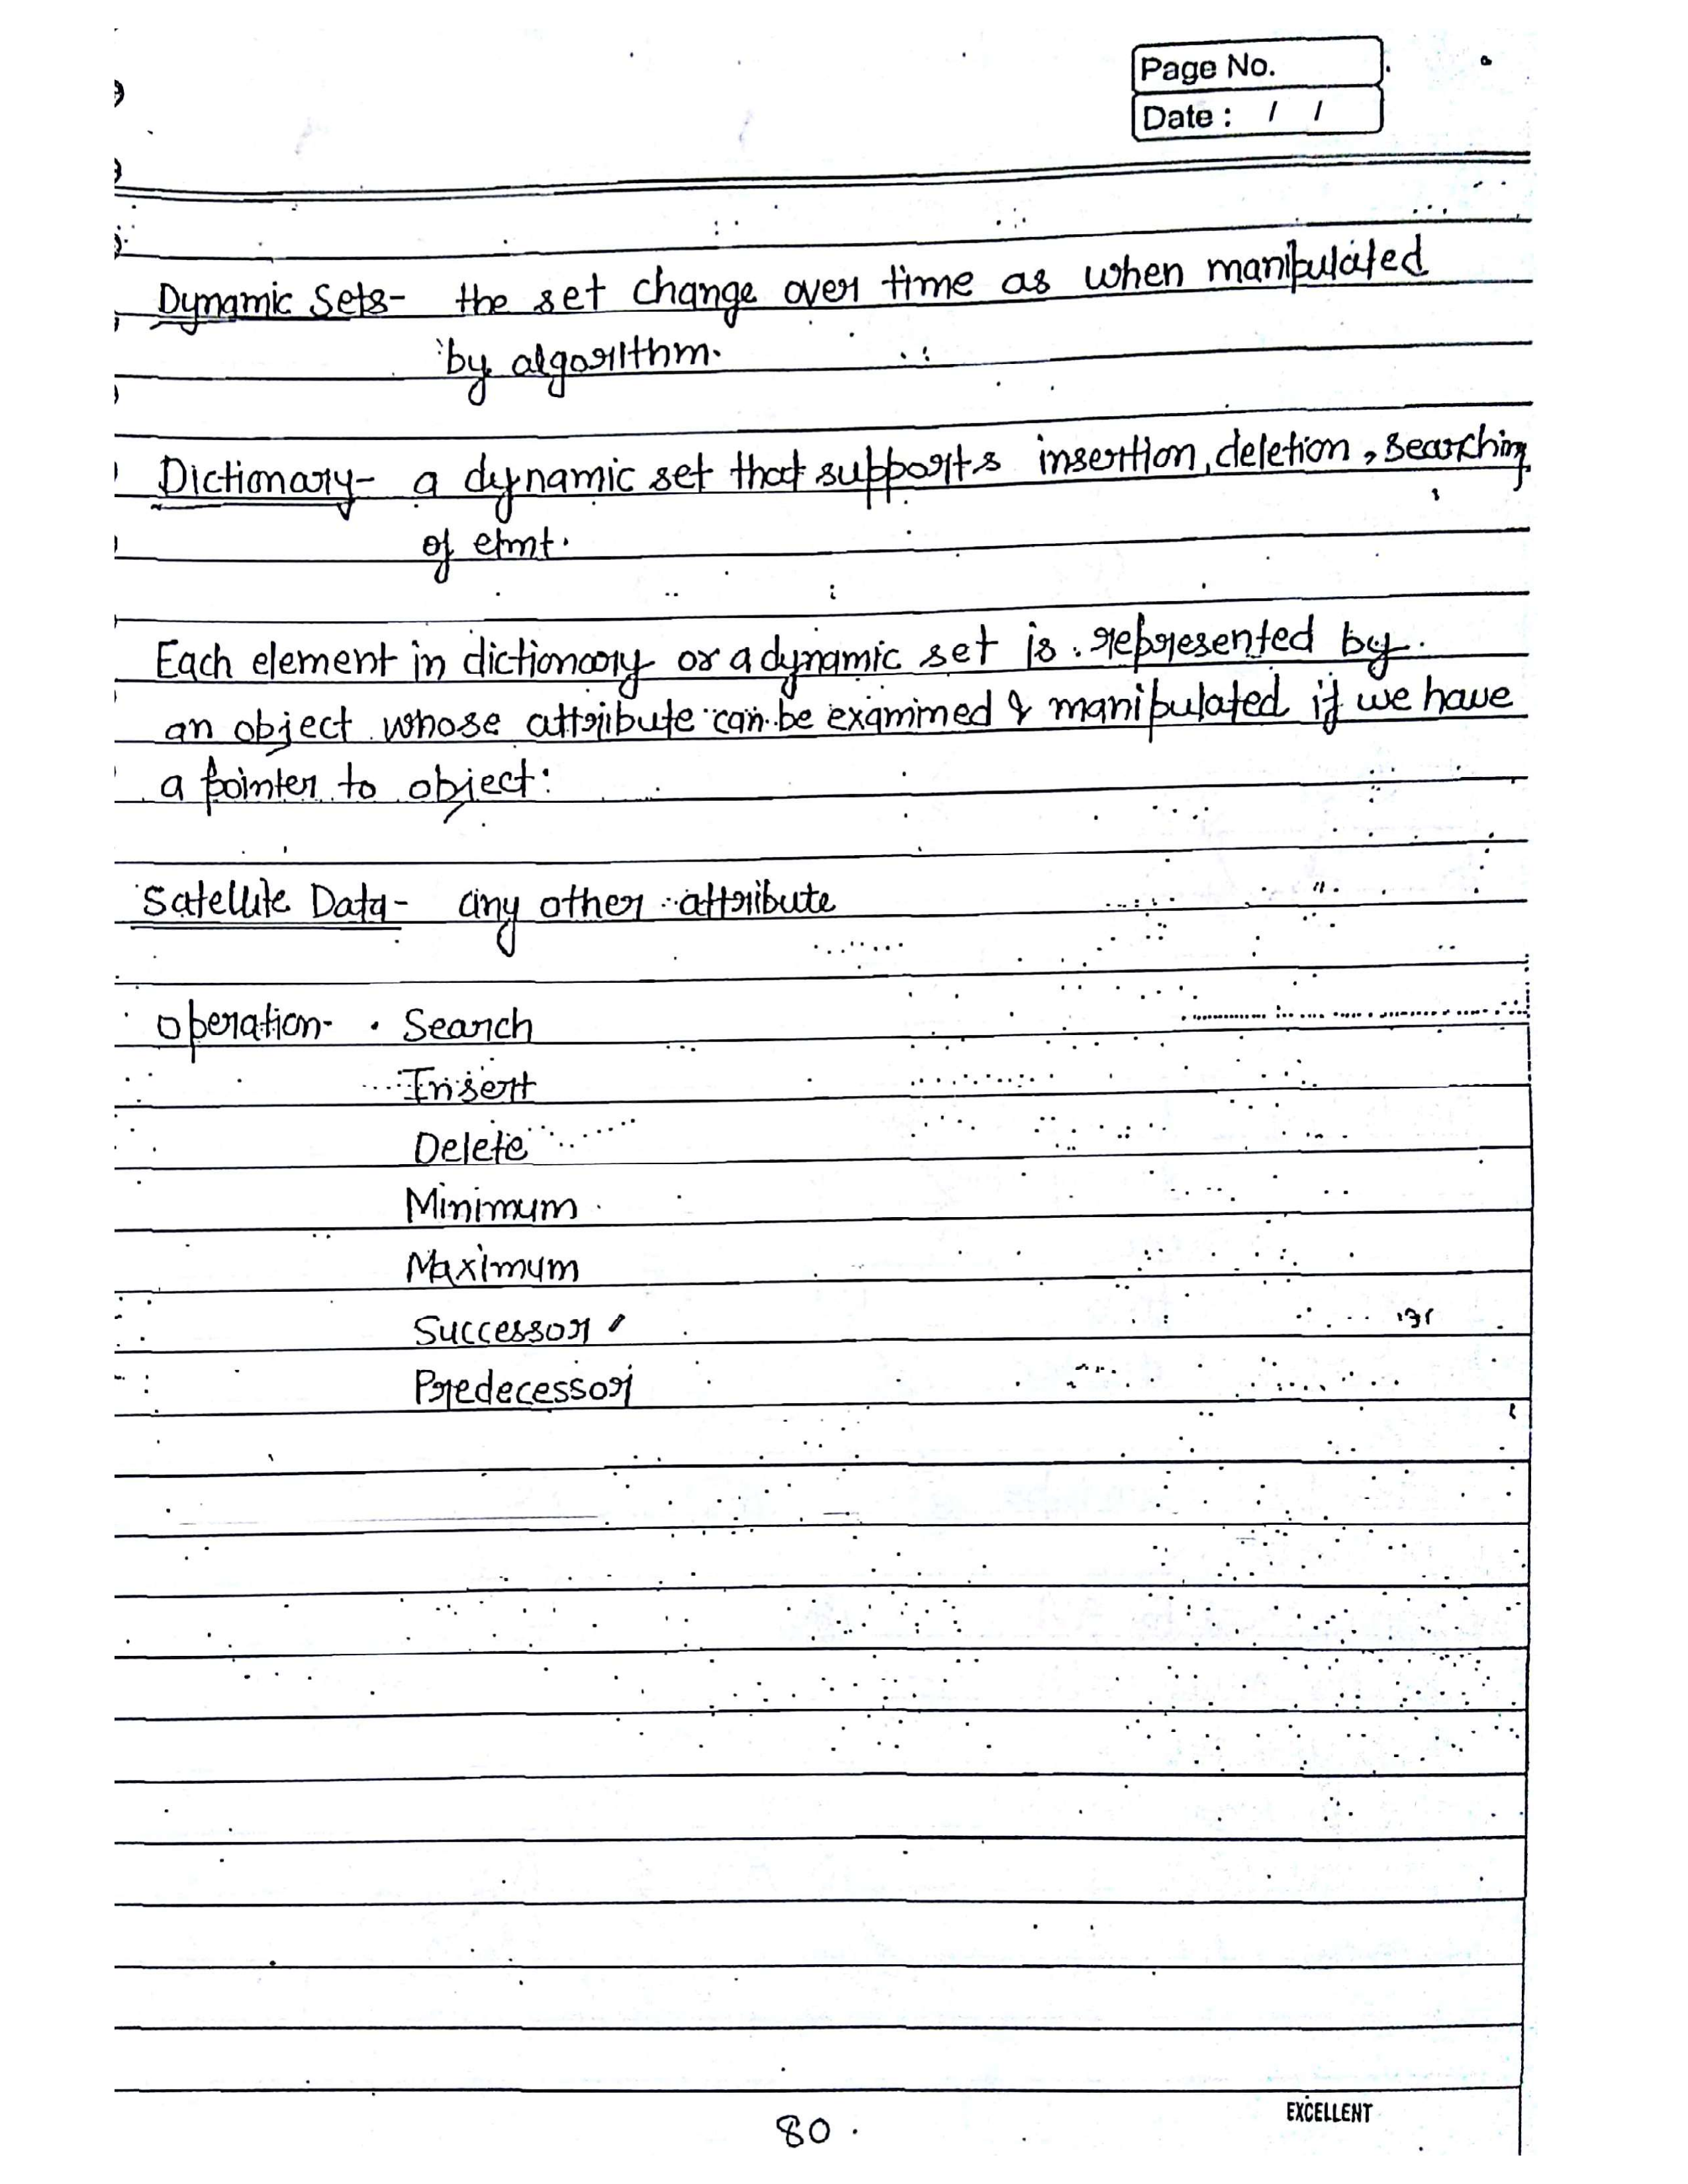 Page No.
Date : / /
Dynamic Sets- the set change over time as when manipulated
by algorithm.
Dictionary- a dynamic set that supports insertion, deletion, searching
of elmt.
Each element in dictionary or a dynamic set is represented by
an object whose attribute can be examined & manipulated if we have
a pointer to object.
Satellite Data- any other attribute
operation- . Search
Insert
Delete
Minimum
Maximum
Successor
Predecessor
80.
EXCELLENT